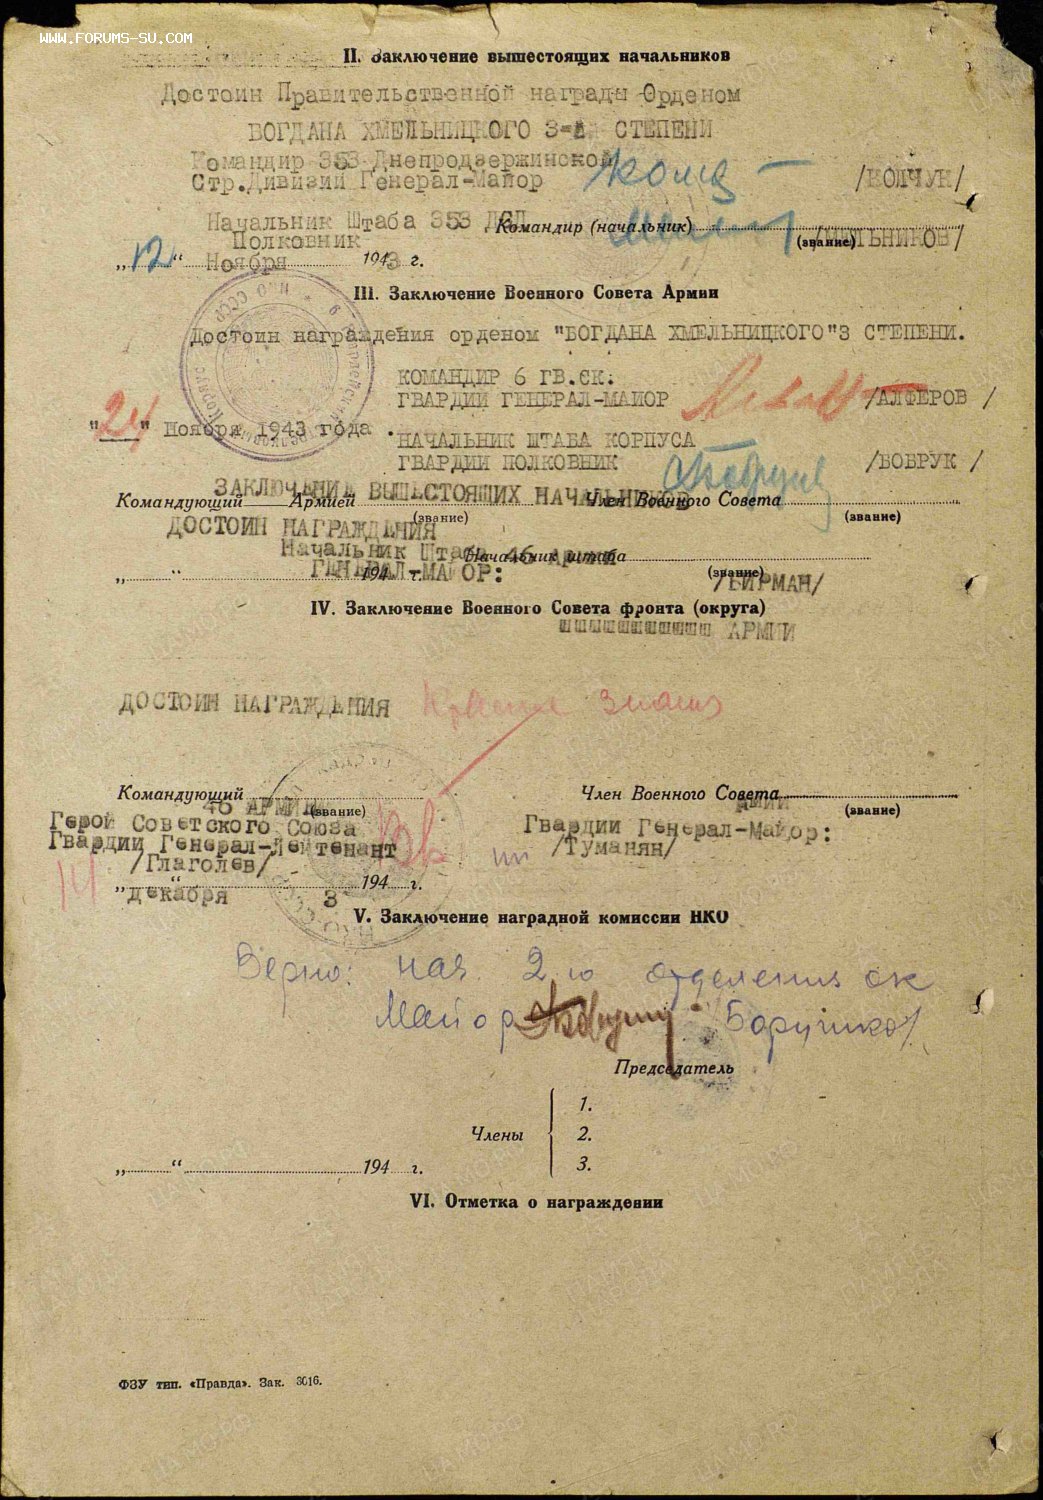 WWW.FORUMS-SU.COM
II. Заключение вышестоящих начальников
Достоин Правительственной награды Орденом
БОГДАНА ХМЕЛЬНИЦКОГО 3-й СТЕПЕНИ
Командир 353 Днепродзержинской
Стр.Дивизии Генерал-Майор /КОЛЧУК/
Начальник Штаба 353 ДСД
Командир (начальник)
Полковник (звание) /МЕЛЬНИКОВ/
„12“ Ноября 1943 г.
III. Заключение Военного Совета Армии
Достоин награждения орденом "БОГДАНА ХМЕЛЬНИЦКОГО"3 СТЕПЕНИ.
КОМАНДИР 6 ГВ.СК.
ГВАРДИИ ГЕНЕРАЛ-МАИОР /АЛФЕРОВ /
"24" Ноября 1943 года.
НАЧАЛЬНИК ШТАБА КОРПУСА
ГВАРДИИ ПОЛКОВНИК /БОБРУК /
ЗАКЛЮЧЕНИЕ ВЫШЕСТОЯЩИХ НАЧАЛЬНИКОВ
Командующий Армией Член Военного Совета
(звание) (звание)
ДОСТОИН НАГРАЖДЕНИЯ
Начальник Штаба 46 Армии
Начальник штаба
ГЕНЕРАЛ-МАЙОР: (звание) /БИРМАН/
„ “ 194 г.
IV. Заключение Военного Совета фронта (округа)
АРМИИ
ДОСТОИН НАГРАЖДЕНИЯ Красное знамя
Командующий Член Военного Совета
46 АРМИИ (звание) (звание)
Герой Советского Союза Гвардии Генерал-Майор:
Гвардии Генерал-Лейтенант /Туманян/
/Глаголев/
14
„ “ 194 г.
декабря 3
V. Заключение наградной комиссии НКО
Верно: нач. 2го отделения ок
Майор
Председатель
Члены
1.
2.
3.
„ “ 194 г.
VI. Отметка о награждении
ФЗУ тип. «Правда». Зак. 3016.